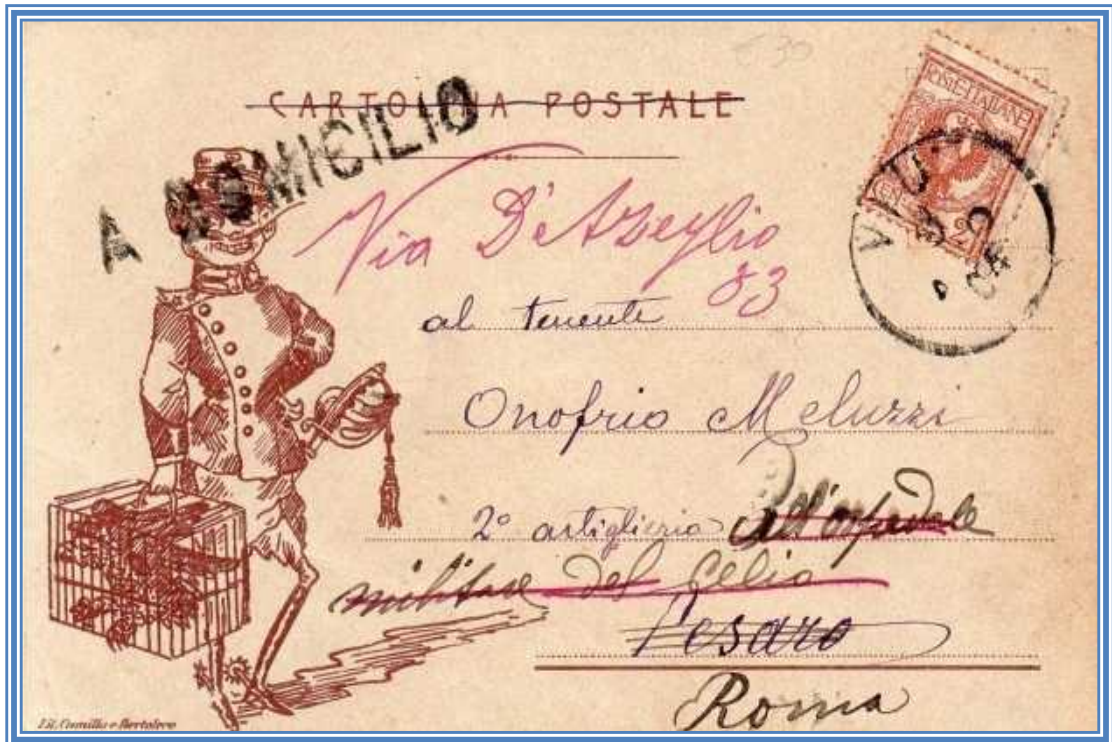 € 30
CARTOLINA POSTALE
A DOMICILIO
POSTE ITALIANE
CENT. 2
Via D'Azeglio
83
al tenente
Onofrio Meluzzi
2º artiglieria all'ospedale
militare del Celio
Pesaro
Roma
Lit. Camilla e Bertolero